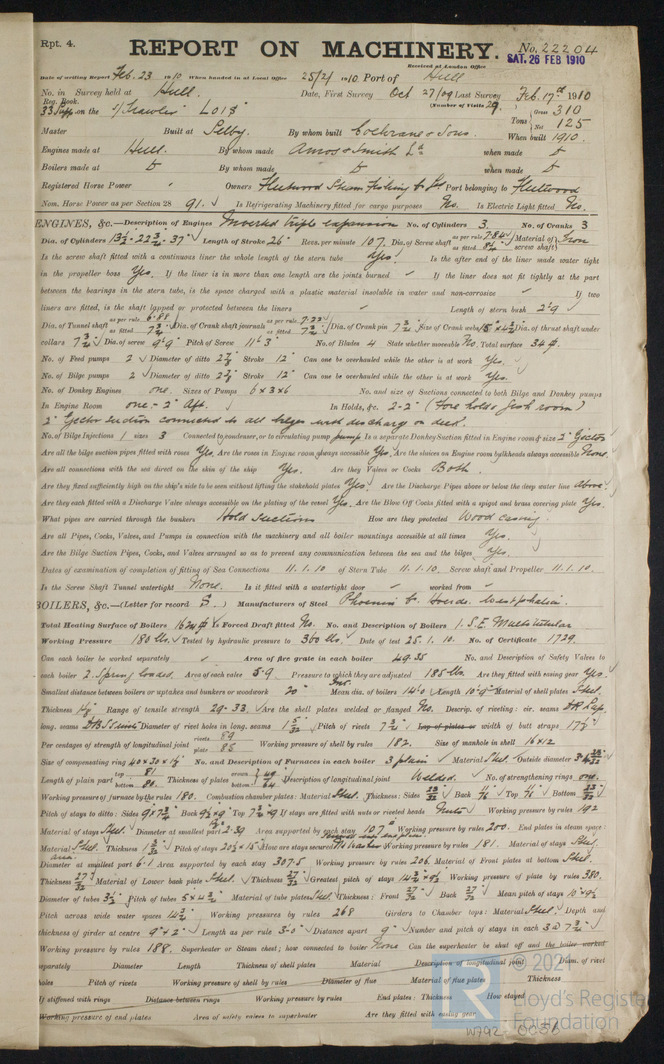 Rpt. 4.
REPORT ON MACHINERY. No. 22204
Received at London Office SAT. 26 FEB 1910
Date of writing Report Feb. 23 1910 When handed in at Local Office 25/2/1910 Port of Hull
No. in Survey held at Hull. Date, First Survey Oct 27/09 Last Survey Feb. 17th 1910
Reg. Book. (Number of Visits 29.)
33 Supp on the Trawler LOIS Tons { Gross 310 Net 125
Master Built at Selby. By whom built Cochrane & Sons. When built 1910.
Engines made at Hull. By whom made Amos & Smith Ld when made
Boilers made at By whom made when made
Registered Horse Power Owners Fleetwood Steam Fishing Co Ld Port belonging to Fleetwood
Nom. Horse Power as per Section 28 91. Is Refrigerating Machinery fitted for cargo purposes No. Is Electric Light fitted No.
ENGINES, &c.—Description of Engines Inverted Triple expansion No. of Cylinders 3. No. of Cranks 3
Dia. of Cylinders 13½ - 22¾ - 37" Length of Stroke 26" Revs. per minute 107. Dia. of Screw shaft as per rule 7.84 as fitted 8¼ Material of screw shaft Iron
Is the screw shaft fitted with a continuous liner the whole length of the stern tube Yes. Is the after end of the liner made water tight
in the propeller boss Yes. If the liner is in more than one length are the joints burned If the liner does not fit tightly at the part
between the bearings in the stern tube, is the space charged with a plastic material insoluble in water and non-corrosive If two
liners are fitted, is the shaft lapped or protected between the liners Length of stern bush 2'9"
Dia. of Tunnel shaft as per rule 6.88 as fitted 7¾ Dia. of Crank shaft journals as per rule 7.22 as fitted 7¾ Dia. of Crank pin 7¾ Size of Crank webs 15 × 4¾ Dia. of thrust shaft under
collars 7¾ Dia. of screw 9'9" Pitch of Screw 11'3" No. of Blades 4 State whether moveable No. Total surface 34 ф.
No. of Feed pumps 2 Diameter of ditto 2⅞ Stroke 12" Can one be overhauled while the other is at work Yes.
No. of Bilge pumps 2 Diameter of ditto 2⅞ Stroke 12" Can one be overhauled while the other is at work Yes.
No. of Donkey Engines one. Sizes of Pumps 6 × 3 × 6 No. and size of Suctions connected to both Bilge and Donkey pumps
In Engine Room one - 2" Aft. In Holds, &c. 2-2" (Fore hold & fish room)
2" Ejector suction connected to all bilges with discharge on deck.
No. of Bilge Injections 1 sizes 3 Connected to condenser, or to circulating pump pump Is a separate Donkey Suction fitted in Engine room & size 2" Ejector
Are all the bilge suction pipes fitted with roses Yes. Are the roses in Engine room always accessible Yes. Are the sluices on Engine room bulkheads always accessible None.
Are all connections with the sea direct on the skin of the ship Yes. Are they Valves or Cocks Both.
Are they fixed sufficiently high on the ship's side to be seen without lifting the stokehold plates Yes. Are the Discharge Pipes above or below the deep water line Above.
Are they each fitted with a Discharge Valve always accessible on the plating of the vessel Yes. Are the Blow Off Cocks fitted with a spigot and brass covering plate Yes.
What pipes are carried through the bunkers Hold Suctions How are they protected Wood casing.
Are all Pipes, Cocks, Valves, and Pumps in connection with the machinery and all boiler mountings accessible at all times Yes.
Are the Bilge Suction Pipes, Cocks, and Valves arranged so as to prevent any communication between the sea and the bilges Yes.
Dates of examination of completion of fitting of Sea Connections 11.1.10 of Stern Tube 11.1.10. Screw shaft and Propeller 11.1.10.
Is the Screw Shaft Tunnel watertight None. Is it fitted with a watertight door worked from
BOILERS, &c.—(Letter for record S.) Manufacturers of Steel Phoenix Co. Hoerde. Westphalia.
Total Heating Surface of Boilers Is Forced Draft fitted No. No. and Description of Boilers 1. S.E. Multitubular
Working Pressure 180 lbs. Tested by hydraulic pressure to 360 lbs. Date of test 25.1.10. No. of Certificate 1729.
Can each boiler be worked separately Area of fire grate in each boiler 49.35 No. and Description of Safety Valves to
each boiler 2. Spring loaded. Area of each valve 5.9 Pressure to which they are adjusted 185 lbs. Are they fitted with easing gear Yes.
Smallest distance between boilers or uptakes and bunkers or woodwork 20" Mean dia. of boilers 14'0 Length 10'9" Material of shell plates Steel.
Thickness Range of tensile strength 29-33 Are the shell plates welded or flanged No. Descrip. of riveting: cir. seams DR Lap.
long. seams Diameter of rivet holes in long. seams 1 5/32 Pitch of rivets 7¾ Lap of plates or width of butt straps 17½
Per centages of strength of longitudinal joint rivets 89 plate 85 Working pressure of shell by rules 182. Size of manhole in shell 16 × 12
Size of compensating ring No. and Description of Furnaces in each boiler 3 plain Material Steel Outside diameter
Length of plain part top 81 bottom 80 Thickness of plates crown bottom Description of longitudinal joint Welded. No. of strengthening rings one.
Working pressure of furnace by the rules 180. Combustion chamber plates: Material Steel. Thickness: Sides 23/32 Back 11/16 Top Bottom 23/32
Pitch of stays to ditto: Sides Back 9½ × 9 Top If stays are fitted with nuts or riveted heads Nuts Working pressure by rules 192
Material of stays Steel. Diameter at smallest part 2.39 Area supported by each stay 107. Working pressure by rules 200. End plates in steam space
Material Steel. Thickness Pitch of stays How are stays secured Working pressure by rules 181. Material of stays Steel.
Diameter at smallest part 6.1 Area supported by each stay 307.5 Working pressure by rules 206. Material of Front plates at bottom Steel.
Thickness 27/32 Material of Lower back plate Steel. Thickness 27/32 Greatest pitch of stays Working pressure of plate by rules 380.
Diameter of tubes 3½ Pitch of tubes 5 × 4¾ Material of tube plates Steel. Thickness: Front 27/32 Back Mean pitch of stays
Pitch across wide water spaces 14¾ Working pressures by rules 268 Girders to Chamber tops: Material Steel. Depth and
thickness of girder at centre 9" × 2" Length as per rule 3-0" Distance apart 9" Number and pitch of stays in each 3 @ 7¾
Working pressure by rules 188. Superheater or Steam chest; how connected to boiler None Can the superheater be shut off and the boiler worked
separately Diameter Length Thickness of shell plates Material Description of longitudinal joint Diam. of rivet
holes Pitch of rivets Working pressure of shell by rules Diameter of flue Material of flue plates Thickness
If stiffened with rings Distance between rings Working pressure by rules End plates: Thickness How stayed
Working pressure of end plates Area of safety valves to superheater Are they fitted with easing gear
© 2021
Lloyd's Register
Foundation
W792-0056